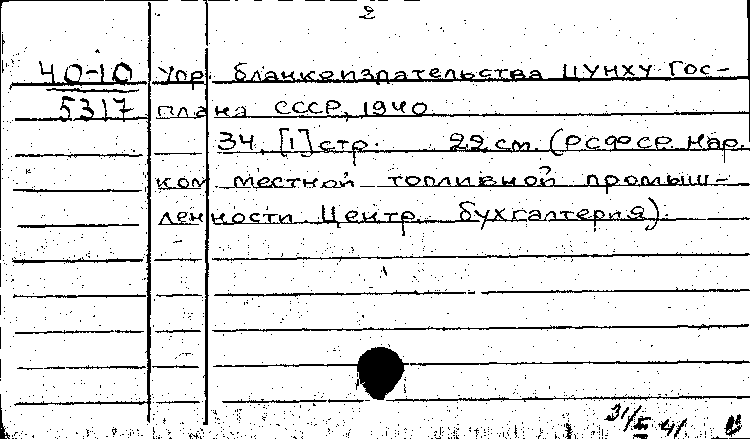 2
40-10 Упр. бланкоиздательства ЦУНХУ Гос-
5317 плана СССР, 1940
34, [1] стр. 22 см. (РСФСР. Нар.
ком местной топливной промыш-
ленности Центр. бухгалтерия).
31/I 41.